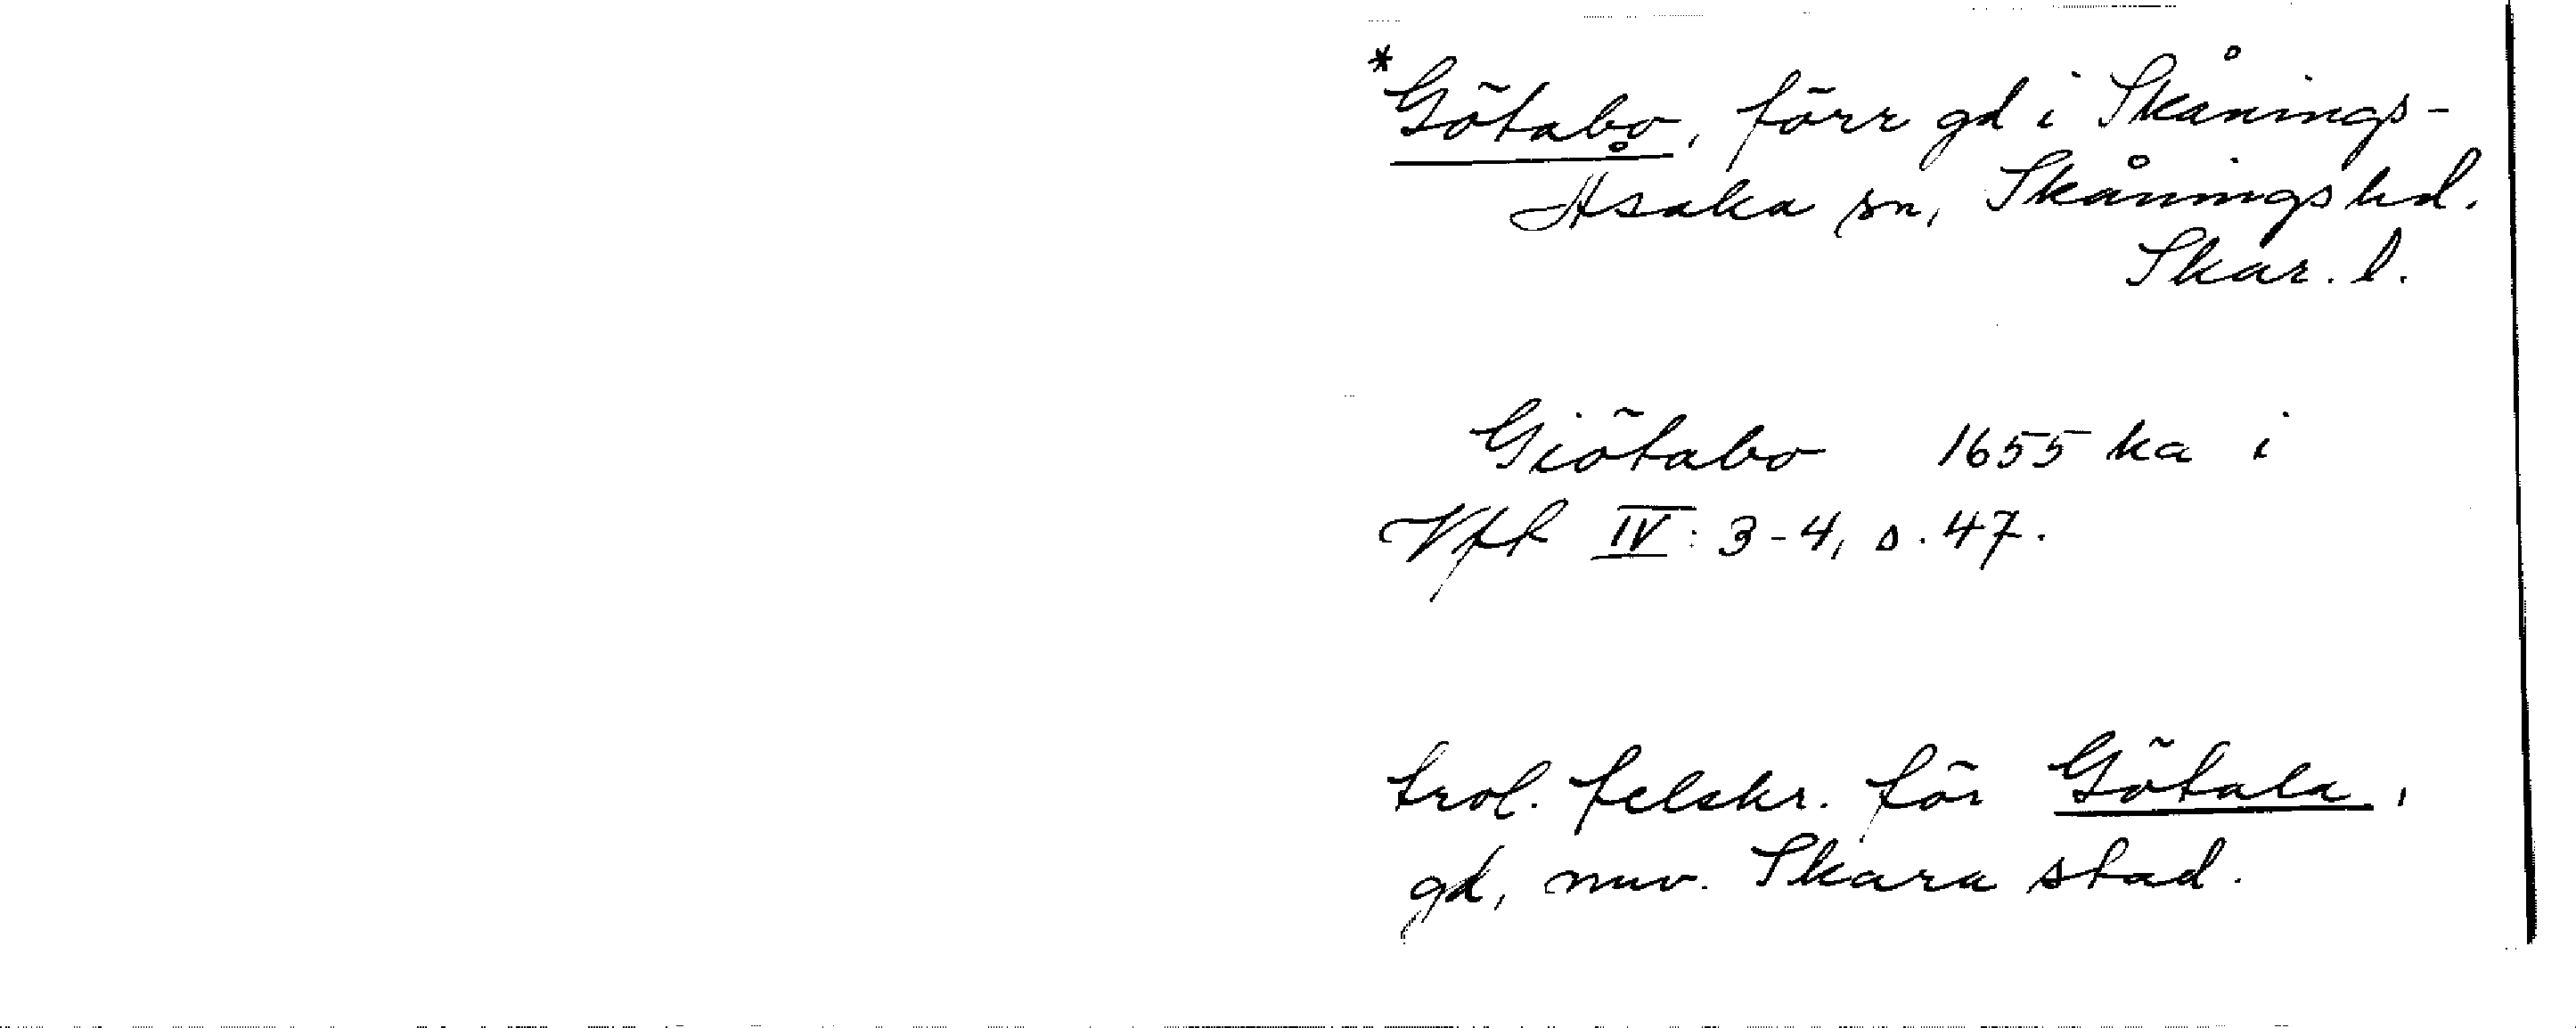 *Götabo, förr gd i Skånings-
Asaka sn, Skånings hd.
Skar. l.
Giötabo 1655 ka i
Vft IV: 3-4, s. 47.
trol. felskr. för Götala,
gd, nuv. Skara stad.